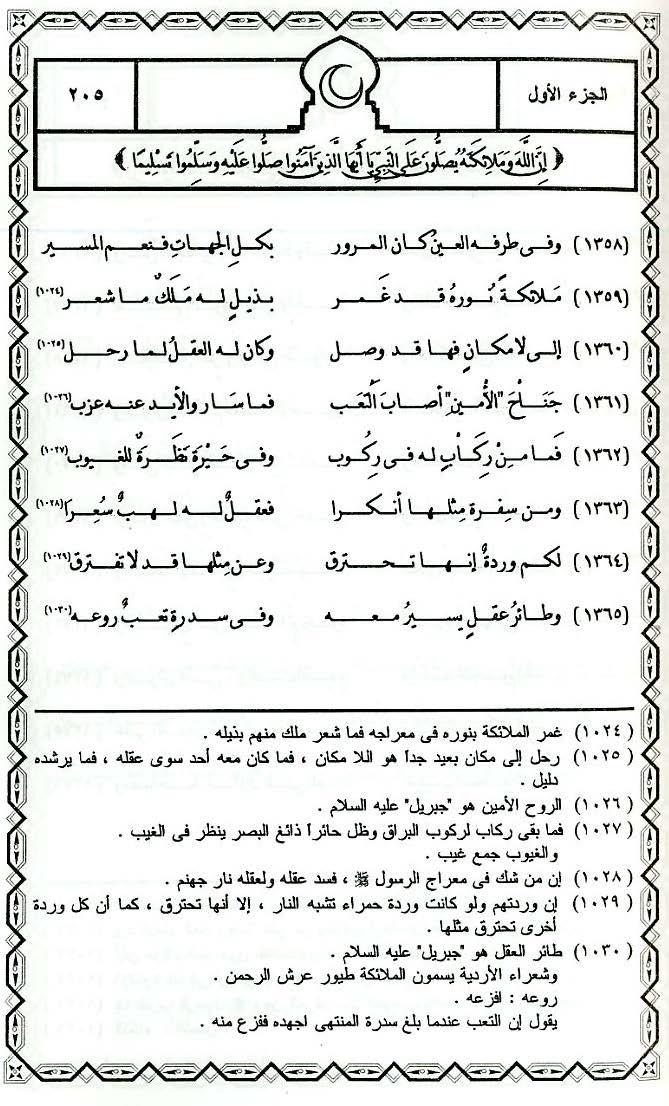 الجزء الأول
٢٠٥
﴿ إِنَّ اللَّهَ وَمَلَائِكَتَهُ يُصَلُّونَ عَلَى النَّبِيِّ يَا أَيُّهَا الَّذِينَ آمَنُوا صَلُّوا عَلَيْهِ وَسَلِّمُوا تَسْلِيمًا ﴾
(١٣٥٨) وفى طرفه العينُ كان المرور بكلِ الجهاتِ فنعم المسير
(١٣٥٩) مَلائكةً نُورهُ قد غَمر بذيلٍ له مَلَكٌ ما شعر(١٠٢٤)
(١٣٦٠) إلى لامكانٍ فها قد وصل وكان له العقلُ لما رحل(١٠٢٥)
(١٣٦١) جَنَاحَ "الأمينِ" أصابَ التَّعب فما سار والأيد عنه عزب(١٠٢٦)
(١٣٦٢) فَما مِنْ رِكَابٍ له فى رِكُوب وفى حَيْرةٍ نَظَرةٌ للغيوب(١٠٢٧)
(١٣٦٣) ومن سِفرة مِثلها أنكرا فعقلٌ له لهبٌ سُعرَا(١٠٢٨)
(١٣٦٤) لكم وردةٌ إنها تحترق وعن مِثلها قد لا تفترق(١٠٢٩)
(١٣٦٥) وطائرُ عقلٍ يسيرُ معه وفى سدرةٍ تعبٌ روعه(١٠٣٠)
(١٠٢٤) غمر الملائكة بنوره فى معراجه فما شعر ملك منهم بذيله .
(١٠٢٥) رحل إلى مكان بعيد جداً هو اللا مكان ، فما كان معه أحد سوى عقله ، فما يرشده
دليل .
(١٠٢٦) الروح الأمين هو "جبريل" عليه السلام .
(١٠٢٧) فما بقى ركاب لركوب البراق وظل حائراً ذائغ البصر ينظر فى الغيب .
والغيوب جمع غيب .
(١٠٢٨) إن من شك فى معراج الرسول ﷺ ، فسد عقله ولعقله نار جهنم .
(١٠٢٩) إن وردتهم ولو كانت وردة حمراء تشبه النار ، إلا أنها تحترق ، كما أن كل وردة
أخرى تحترق مثلها .
(١٠٣٠) طائر العقل هو "جبريل" عليه السلام .
وشعراء الأردية يسمون الملائكة طيور عرش الرحمن .
روعه : افزعه .
يقول إن التعب عندما بلغ سدرة المنتهى اجهده ففزع منه .